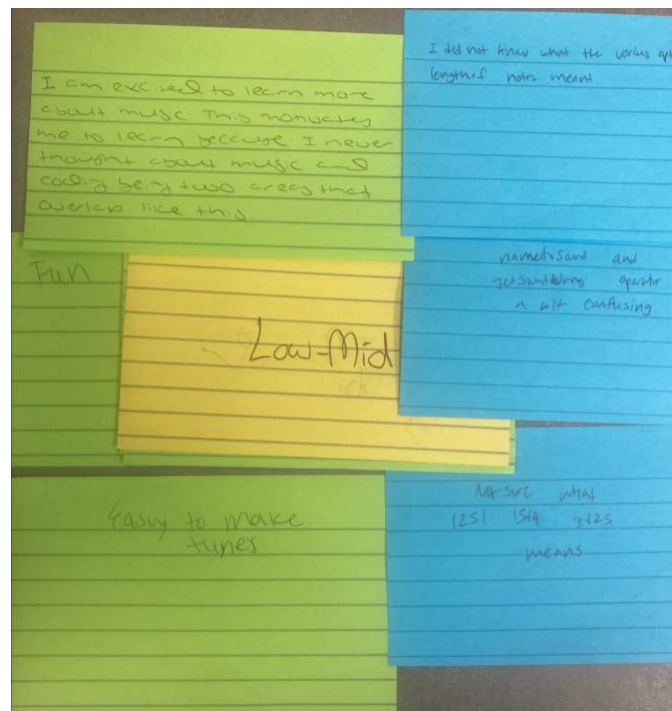 I am excited to learn more
about music This motivates
me to learn because I never
thought about music and
coding being two areas that
overlap like this.
I did not know what the various
length of notes meant.
Fun
Low-Mid
and
operator
a bit confusing.
Easy to make
tunes
Not sure what
1251
means